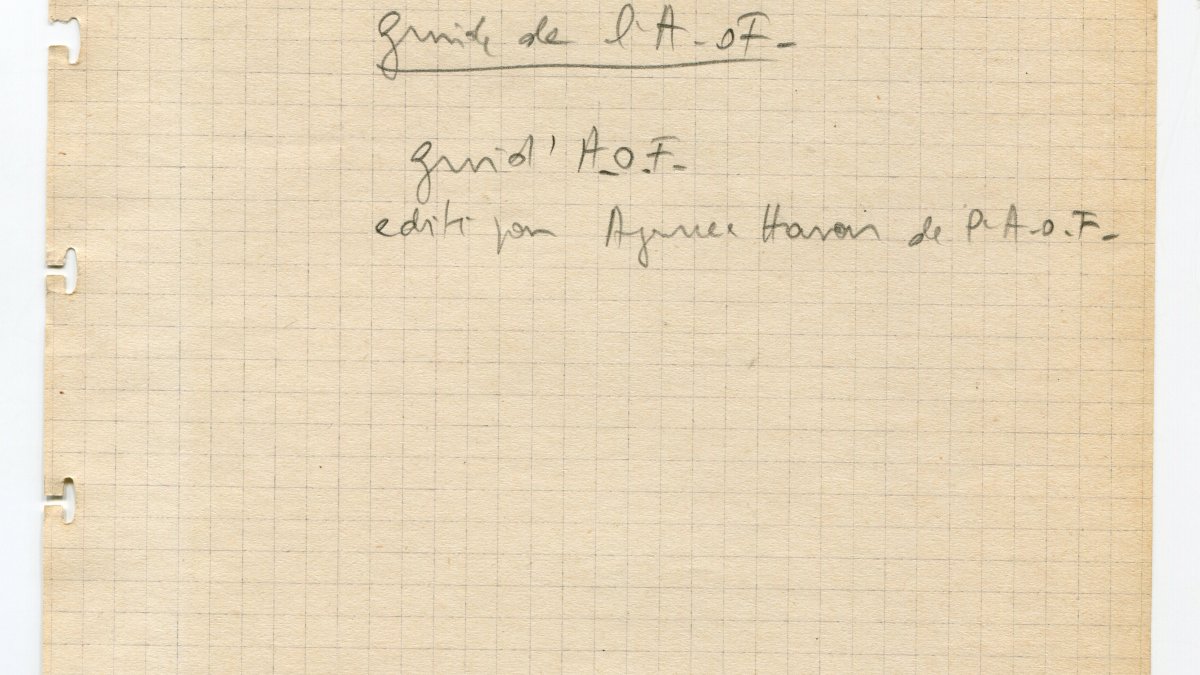 guide de l'A-OF-
guid' A.O.F-
edité par Agence Havas de l'A-O.F-